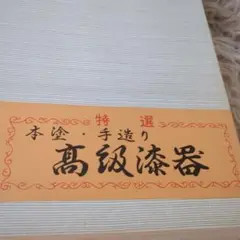 特選
本塗・手造り
高級漆器